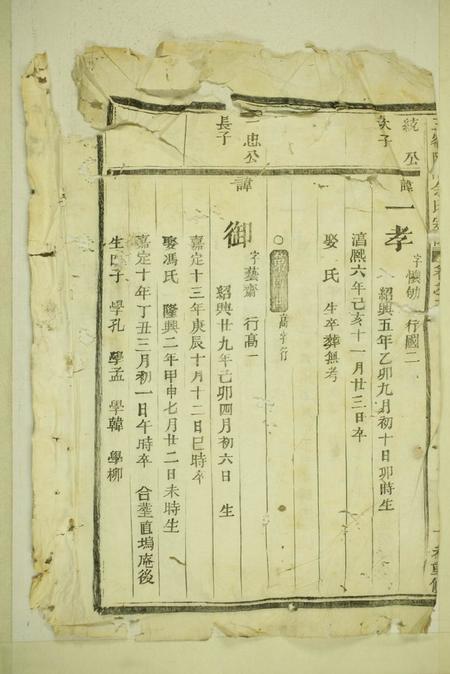 統公
次子
諱
一孝
字懷劬 行國二
紹興五年乙卯九月初十日卯時生
淳熙六年己亥十一月廿三日卒
娶 氏 生卒葬無考
○
高字行
一忠公
長子
諱
御
字藝齋 行高一
紹興廿九年己卯四月初六日 生
嘉定十三年庚辰十月十二日巳時卒
娶馮氏 隆興二年甲申七月廿二日未時生
嘉定十年丁丑三月初一日午時卒 合塟直塢庵後
生四子 學孔 學孟 學韓 學柳